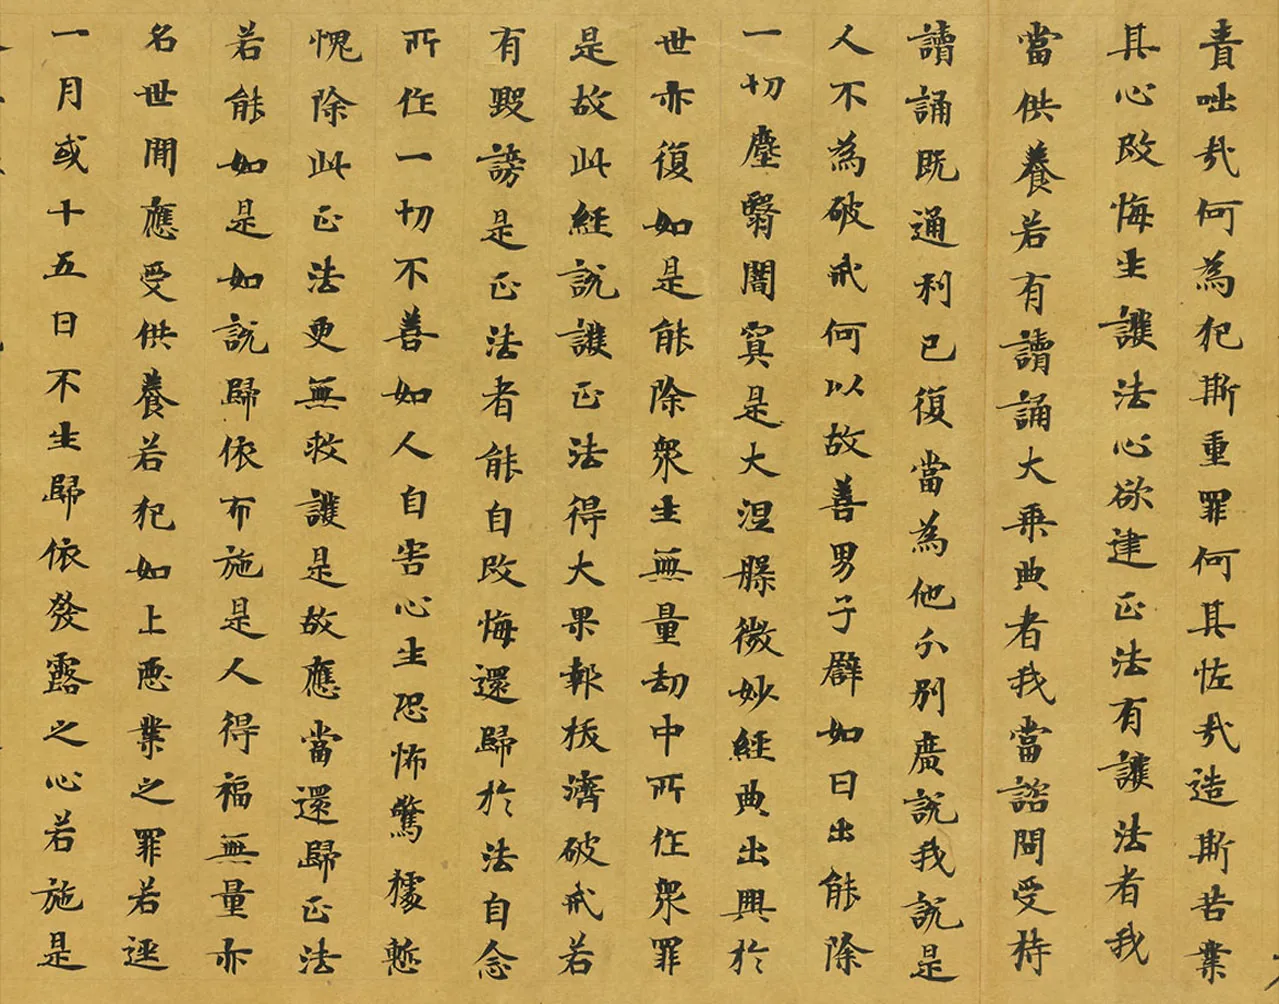 責咄哉何為犯斯重罪何其恠哉造斯苦業
其心改悔生護法心欲建正法有護法者我
當供養若有讀誦大乗典者我當諮問受持
讀誦既通利已復當為他分別廣說我說是
人不為破戒何以故善男子譬如日出能除
一切塵翳闇冥是大涅槃微妙經典出興於
世亦復如是能除衆生無量劫中所作衆罪
是故此經說護正法得大果報拔濟破戒若
有毀謗是正法者能自改悔還歸於法自念
所作一切不善如人自害心生恐怖驚懅慙
愧除此正法更無救護是故應當還歸正法
若能如是如說歸依布施是人得福無量亦
名世間應受供養若犯如上惡業之罪若逕
一月或十五日不生歸依發露之心若施是